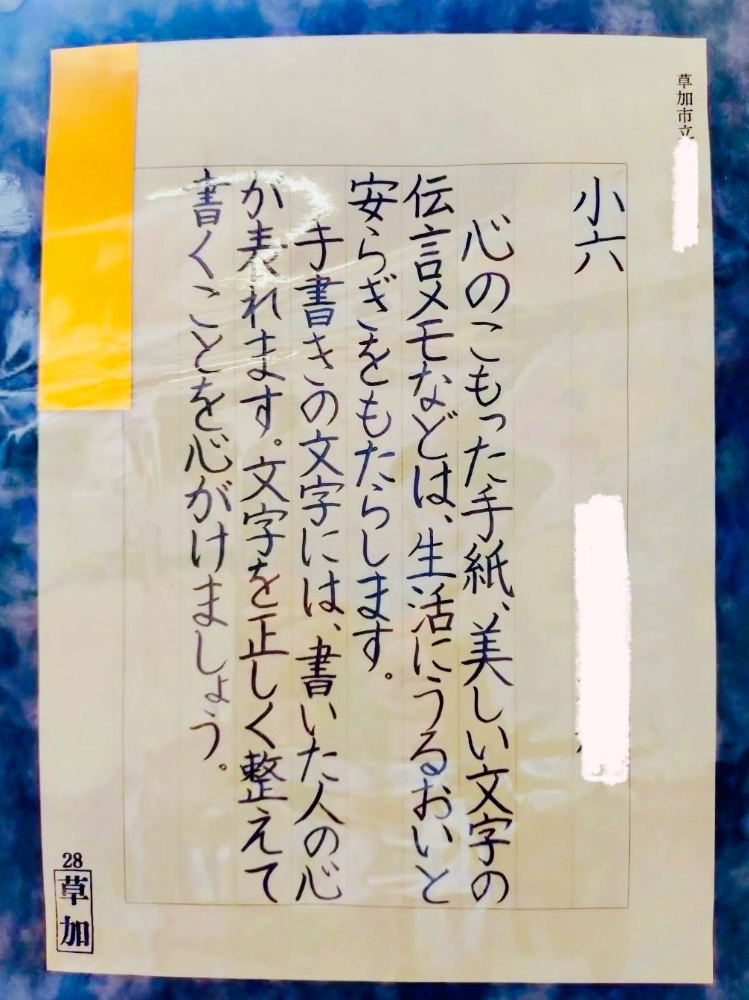 草加市立
小六
心のこもった手紙、美しい文字の
伝言メモなどは、生活にうるおいと
安らぎをもたらします。
手書きの文字には、書いた人の心
が表れます。文字を正しく整えて
書くことを心がけましょう。
28
草加